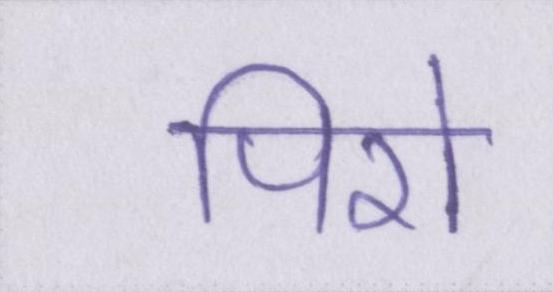 पिरो